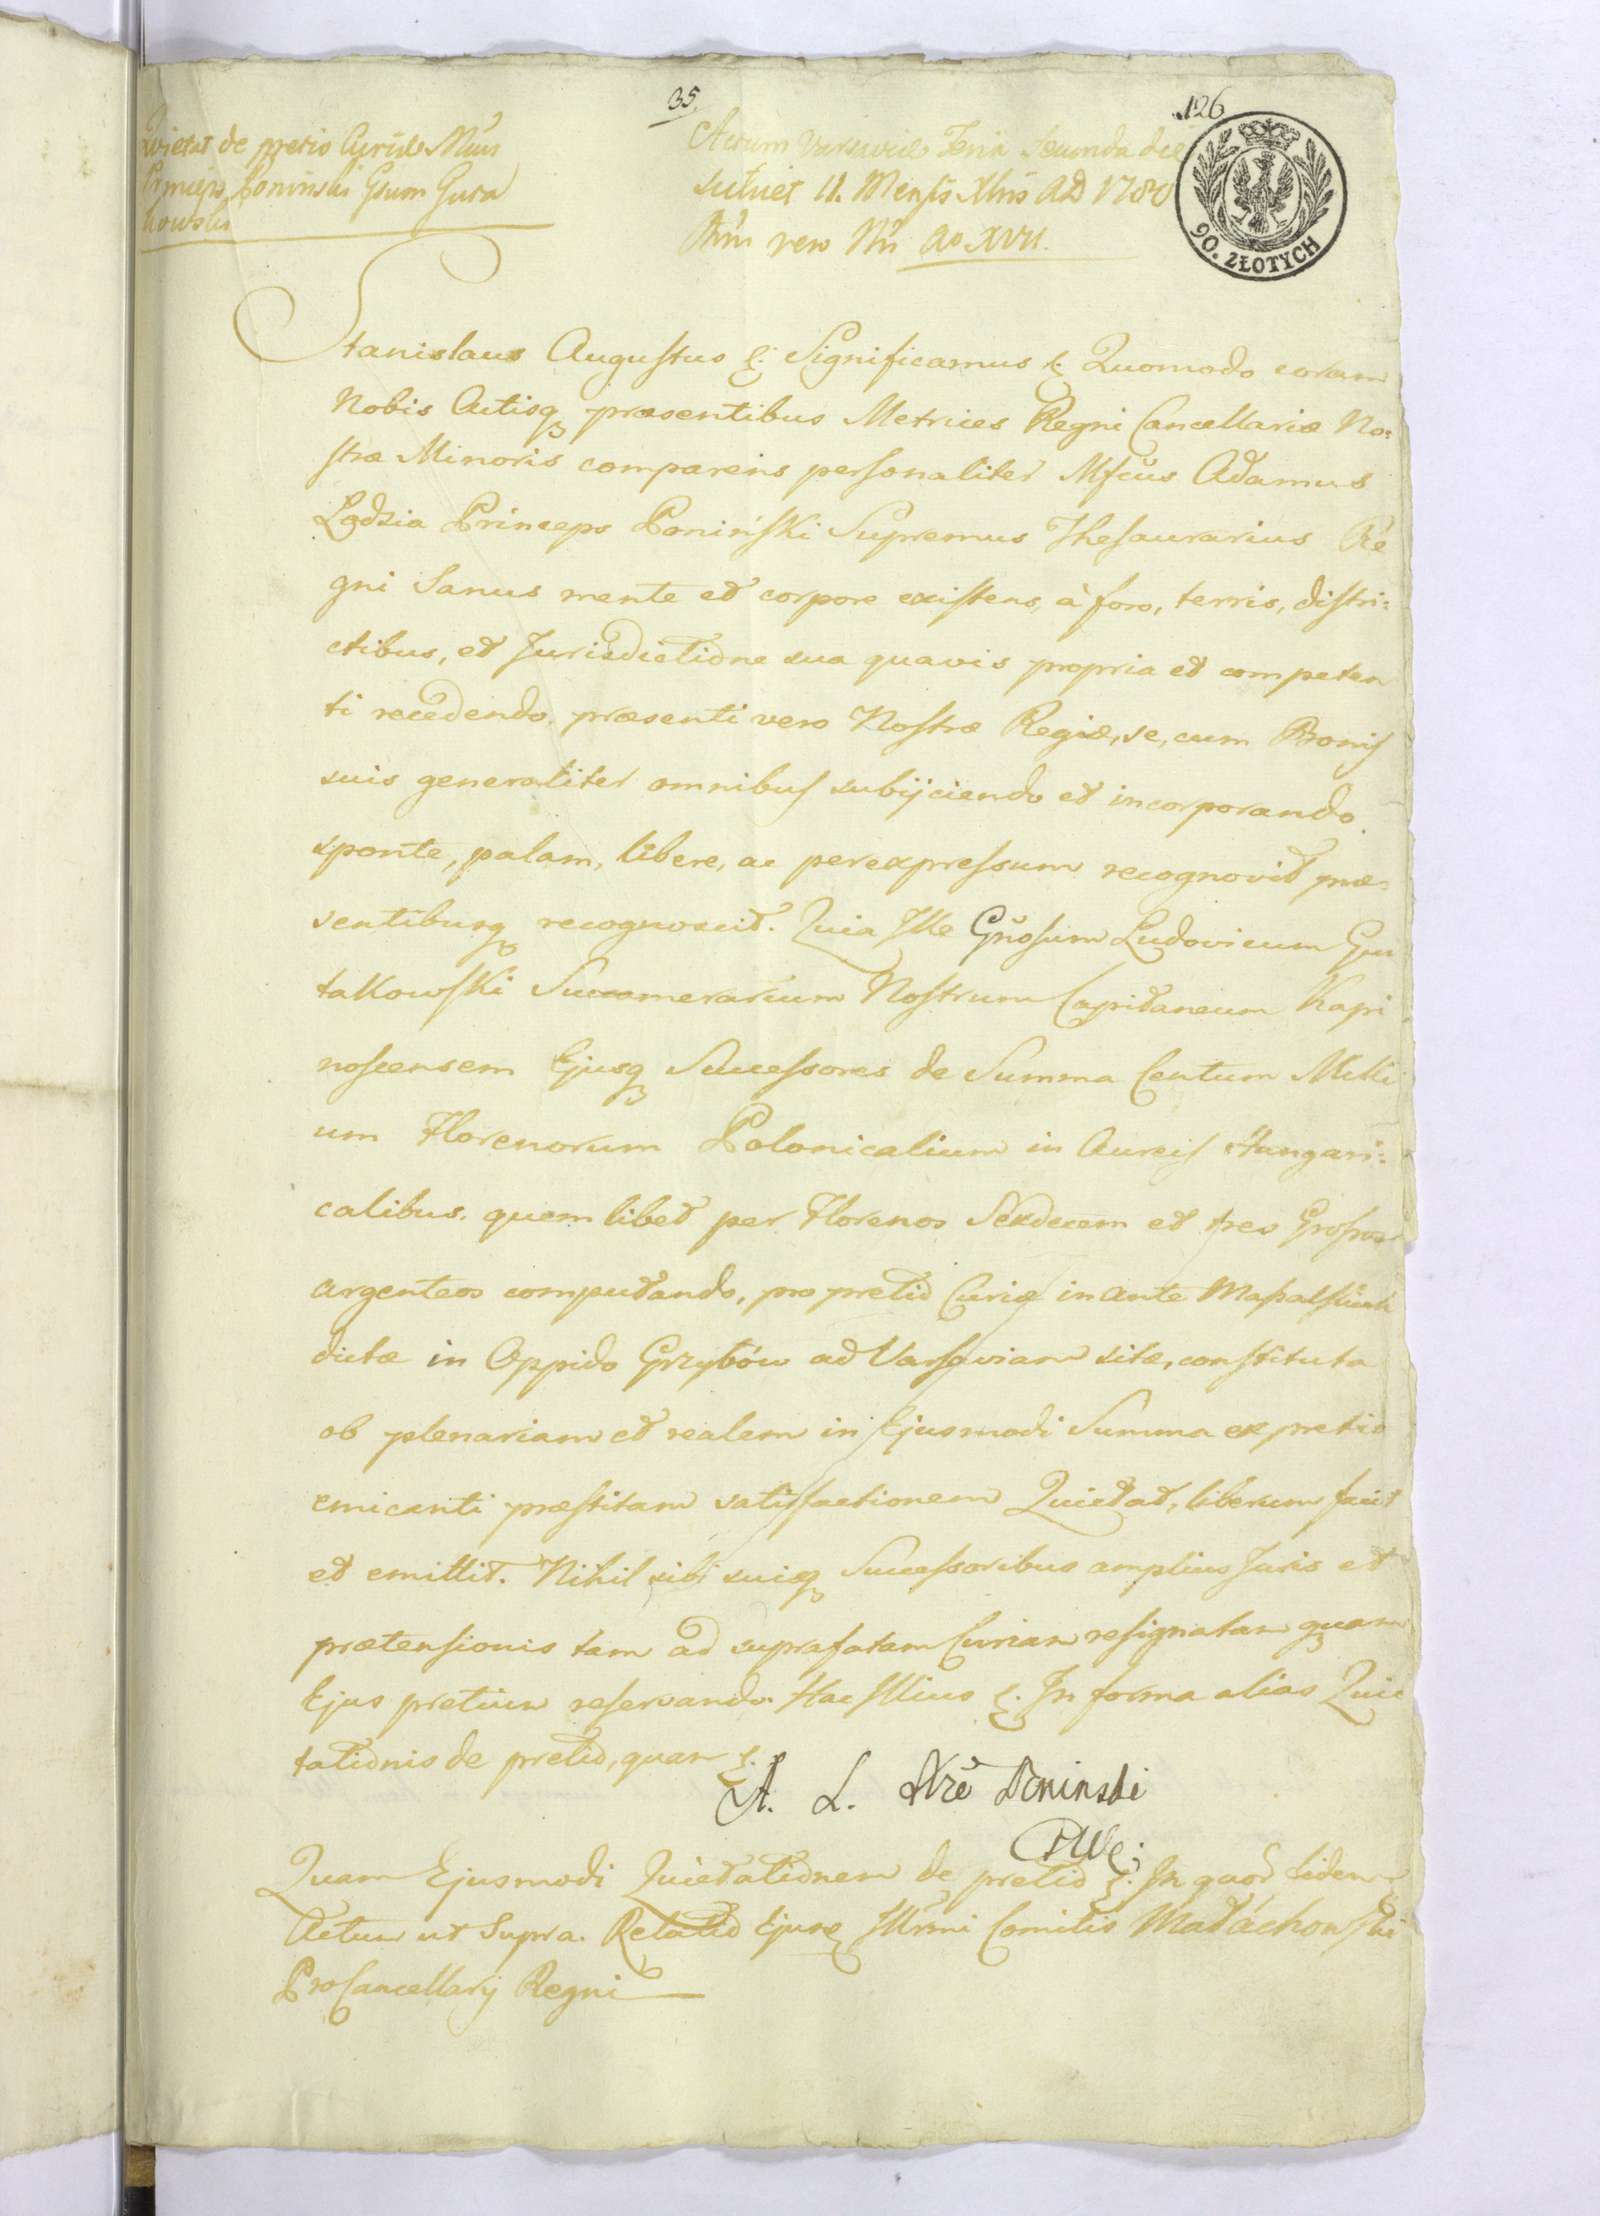 35.
126
Quietat de pretio Curiæ Mcus
Princeps Poninski Gsum Guta
kowski
Actum Varsaviæ Feria Secunda die
scilicet 11. Mensis Xbris AD 1780
Rni vero Nri ao XVII.
90. ZŁOTYCH
Stanislaus Augustus &. Significamus &. Quomodo coram
Nobis Actisq præsentibus Metrices Regni Cancellariæ No=
stræ Minoris comparens personaliter Mfcus Adamus
Lodzia Princeps Poniński Supremus Thesaurarius Re
gni Sanus mente et corpore existens, à foro, terris, distri=
ctibus, et Jurisdictione sua quavis propria et competen
ti recedendo, præsenti vero Nostræ Regiæ, se, cum Bonis
suis generaliter omnibus subijciendo et incorporando
sponte, palam, libere, ac per expressum recognovit præ=
sentibusq recognoscit. Quia Ille Gnosum Ludovicum Gu
takowski Succamerarium Nostrum Capitaneum Kapi
noscensem Ejusq Successores de Summa Centum Milli
um Florenorum Polonicalium in Aureis Hungari=
calibus. quemlibet per Florenos Sexdecem et tres Grossos
argenteos computando, pro pretio Curiæ in ante
dictæ in Oppido Grzybów ad Varsaviam sitæ, constituta
ob plenariam et realem in Ejusmodi Summa ex pretio
emicanti præstitam satisfactionem Quietat, liberum facit
et emittit. Nihil sibi suisq Successoribus amplius Juris et
prætensionis tam ad suprafatam Curiam resignatam quam
Ejus pretium reservando. Hac Illius &. In forma alias Quie
tationis de pretio, quam &.
A. L. Xże Poninski
PWK
Quam Ejusmodi Quietationem de pretio &. In quor fidem
Actum ut Supra. Relatio Ejusq Illrmi Comitis Małachowski
ProCancellarij Regni